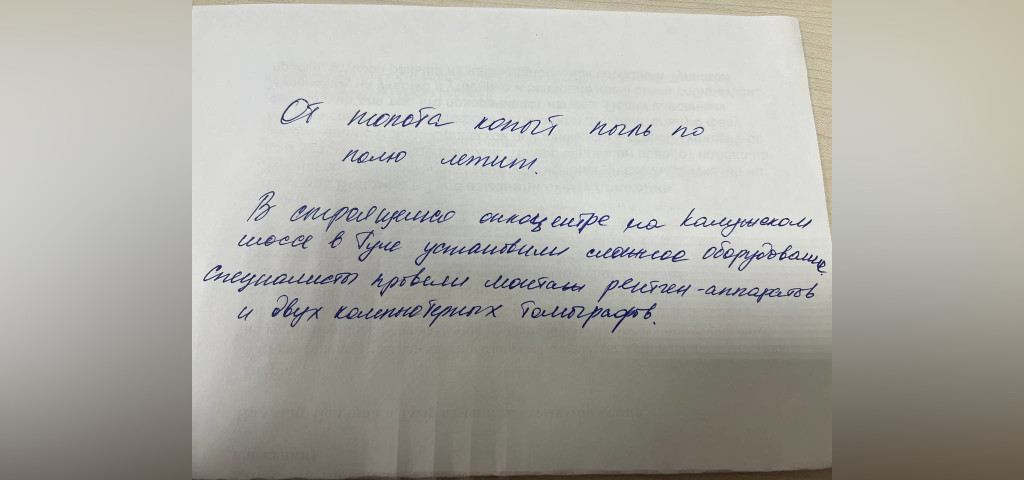 От топота копыт пыль по
полю летит.
В строящемся онкоцентре на Калужском
шоссе в Туле установили сложное оборудование.
Специалисты провели монтаж рентген-аппаратов
и двух компьютерных томографов.